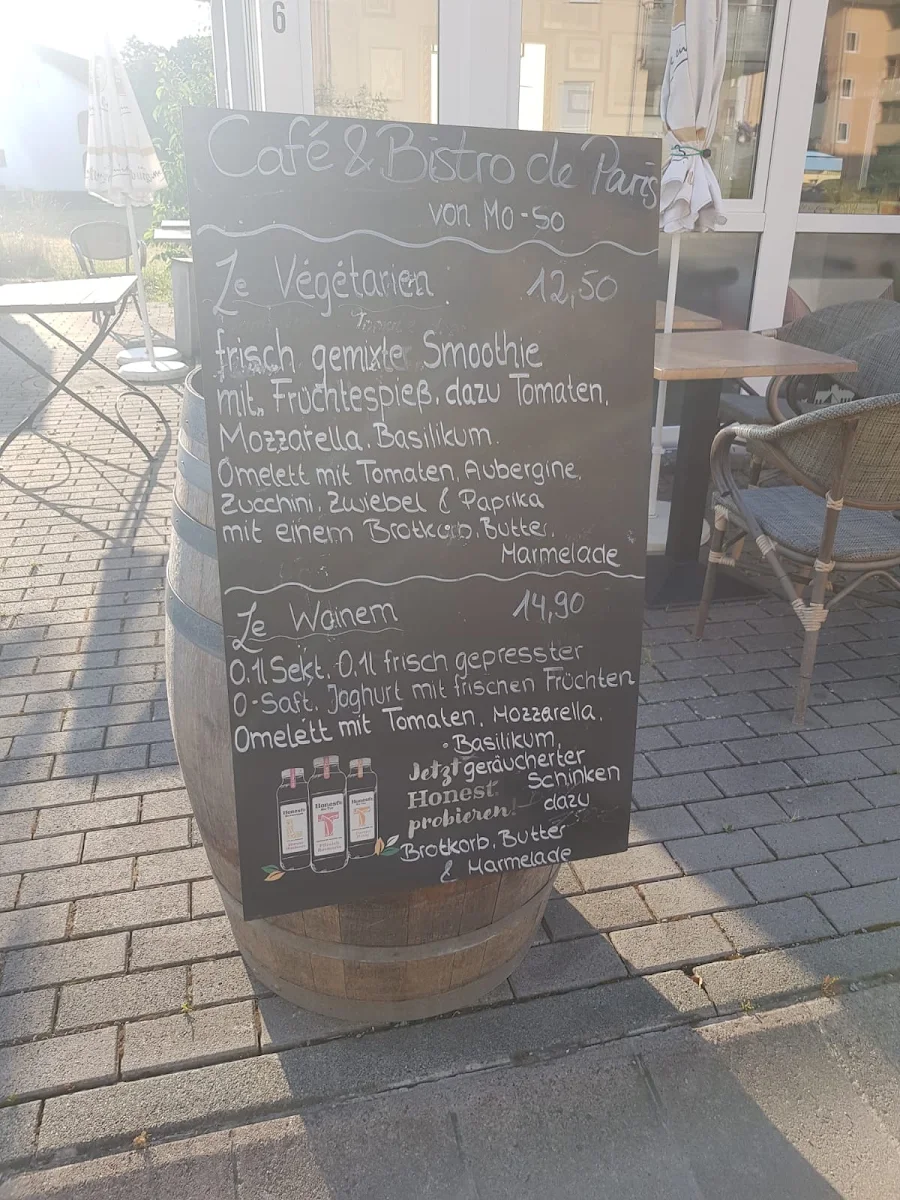 6
Café & Bistro de Paris
von Mo-So
Le Végétarien 12,50
frisch gemixte Smoothie
mit, Früchtespieß, dazu Tomaten,
Mozzarella, Basilikum.
Omelett mit Tomaten, Aubergine,
Zucchini, Zwiebel & Paprika
mit einem Brotkorb, Butter,
Marmelade
Le Wainem 14,90
0,1l Sekt, 0,1l frisch gepresster
O-Saft, Joghurt mit frischen Früchten
Omelett mit Tomaten, Mozzarella,
Basilikum,
geräucherter
Schinken
dazu
Brotkorb, Butter
& Marmelade
Jetzt
Honest
probieren!